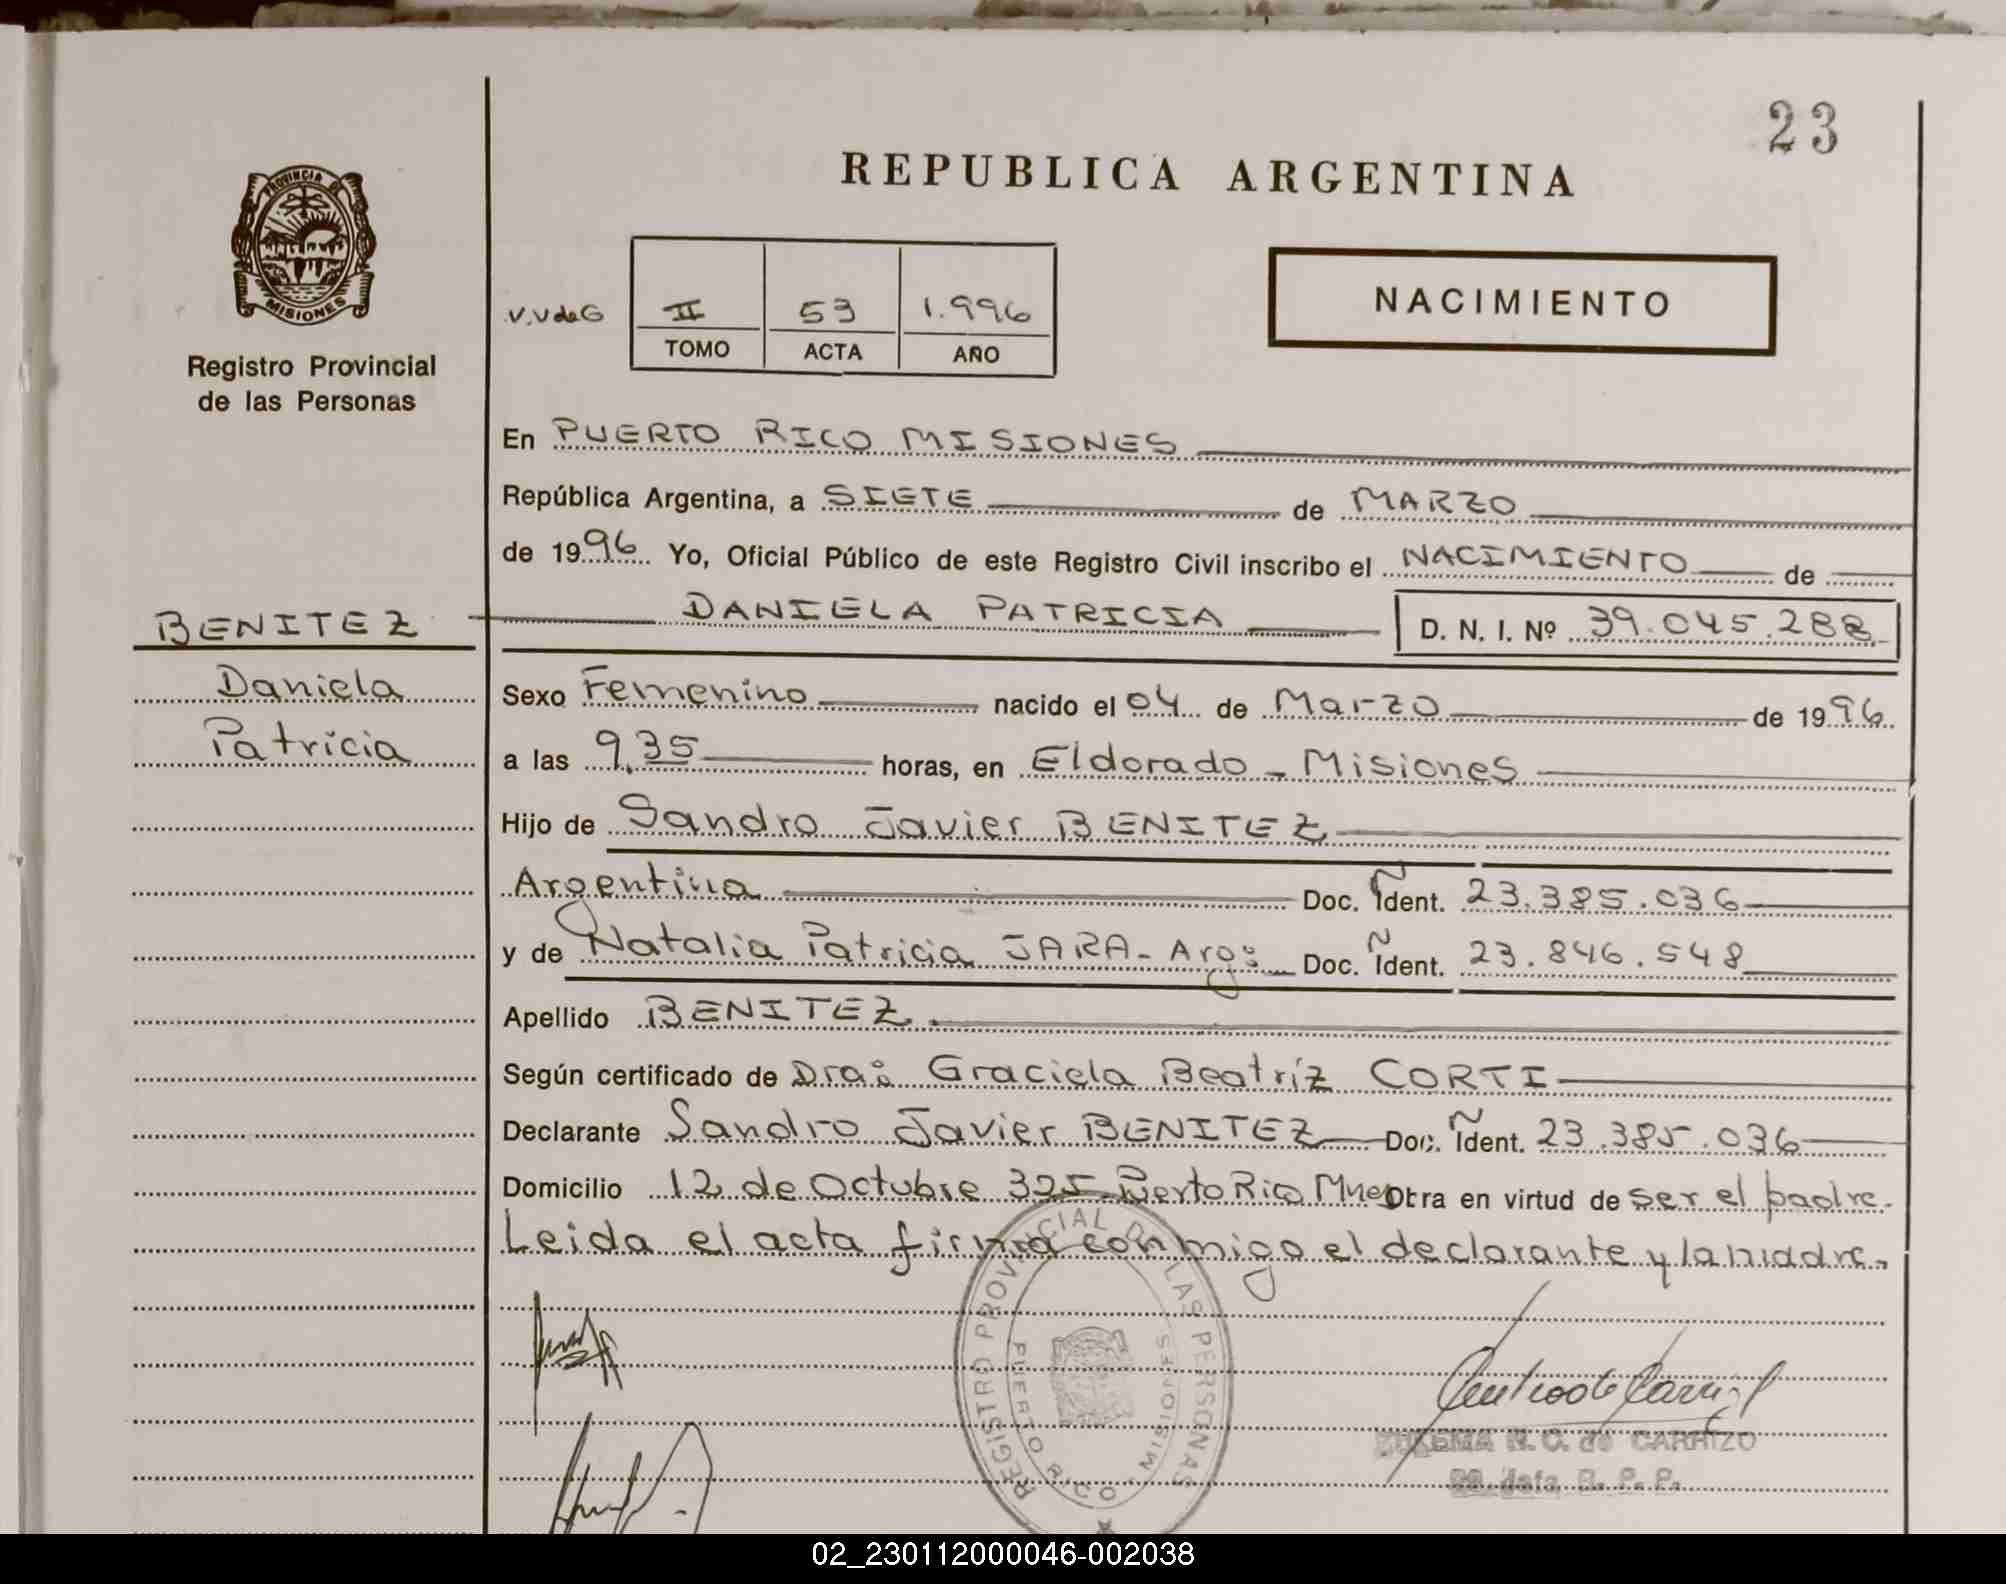 23
REPUBLICA ARGENTINA
PROVINCIA DE
MISIONES
Registro Provincial
de las Personas
V.VdeG
II 53 1.996
TOMO ACTA AÑO
NACIMIENTO
En PUERTO RICO MISIONES
República Argentina, a SIETE de MARZO
de 1996 Yo, Oficial Público de este Registro Civil inscribo el NACIMIENTO de
BENITEZ
DANIELA PATRICIA D. N. I. Nº 39.045.288
Daniela
Sexo Femenino nacido el 04 de Marzo de 1996
Patricia
a las 9.35 horas, en Eldorado - Misiones
Hijo de Sandro Javier BENITEZ
Argentina Doc. Ident. 23.385.036
y de Natalia Patricia JARA - Arg: Doc. Ident. 23.846.548
Apellido BENITEZ.
Según certificado de Dra: Graciela Beatríz CORTI
Declarante Sandro Javier BENITEZ Doc. Ident. 23.385.036
Domicilio 12 de Octubre 325 - Puerto Rico Mnes Obra en virtud de ser el padre.
Leida el acta firma conmigo el declarante y la madre.
REGISTRO PROVINCIAL DE LAS PERSONAS
PUERTO RICO MISIONES
N. C. de CARRIZO
R. P. P.
02_230112000046-002038